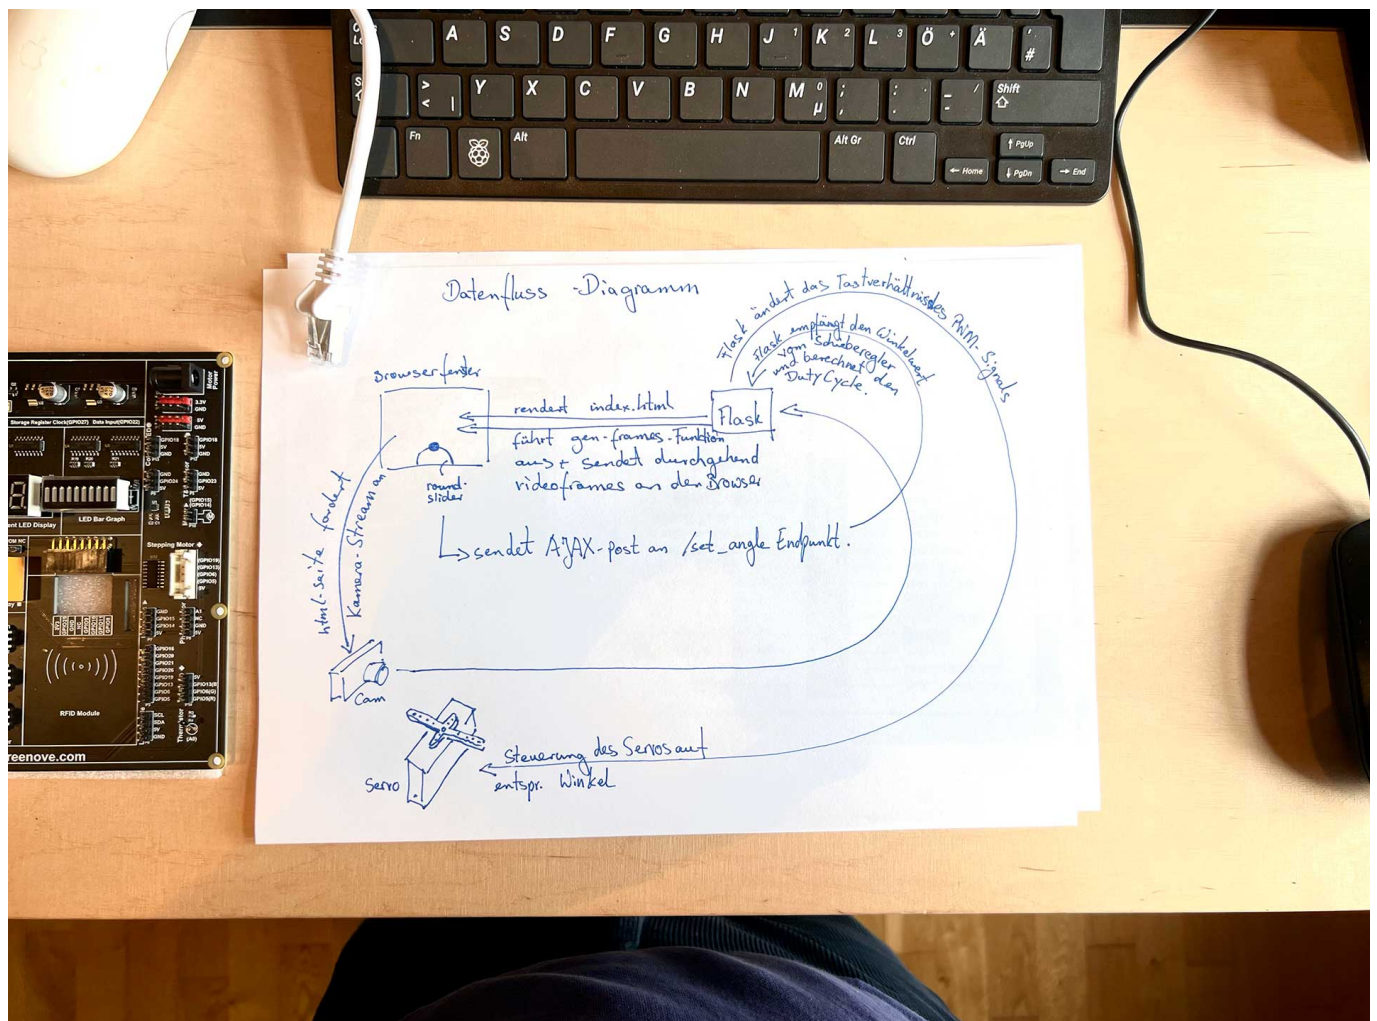 A S D F G H J 1 K 2 L 3 Ö + Ä ' #
> < | Y X C V B N M 0 µ ; , : . _ - / Shift
Fn Alt Alt Gr Ctrl ↑ PgUp
← Home ↓ PgDn → End
Datenfluss - Diagramm
Flask ändert das Tastverhältnis des PWM-Signals
Flask empfängt den Winkelwert
vom Schieberegler
und berechnet den
DutyCycle.
Browserfenster
rendert index.html
Flask
führt gen-frames-Funktion
aus + sendet durchgehend
videoframes an den Browser
round-
slider
sendet AJAX-post an /set_angle Endpunkt.
html-seite fordert
Kamera-Stream an
Cam
Servo
Steuerung des Servos auf
entspr. Winkel
Motor
Power
3.3V
GND
5V
GND
Storage Register Clock(GPIO27) Data Input(GPIO22)
LED Display
LED Bar Graph
Stepping Motor
RFID Module
SCL
SDA
5V
GND
reenove.com